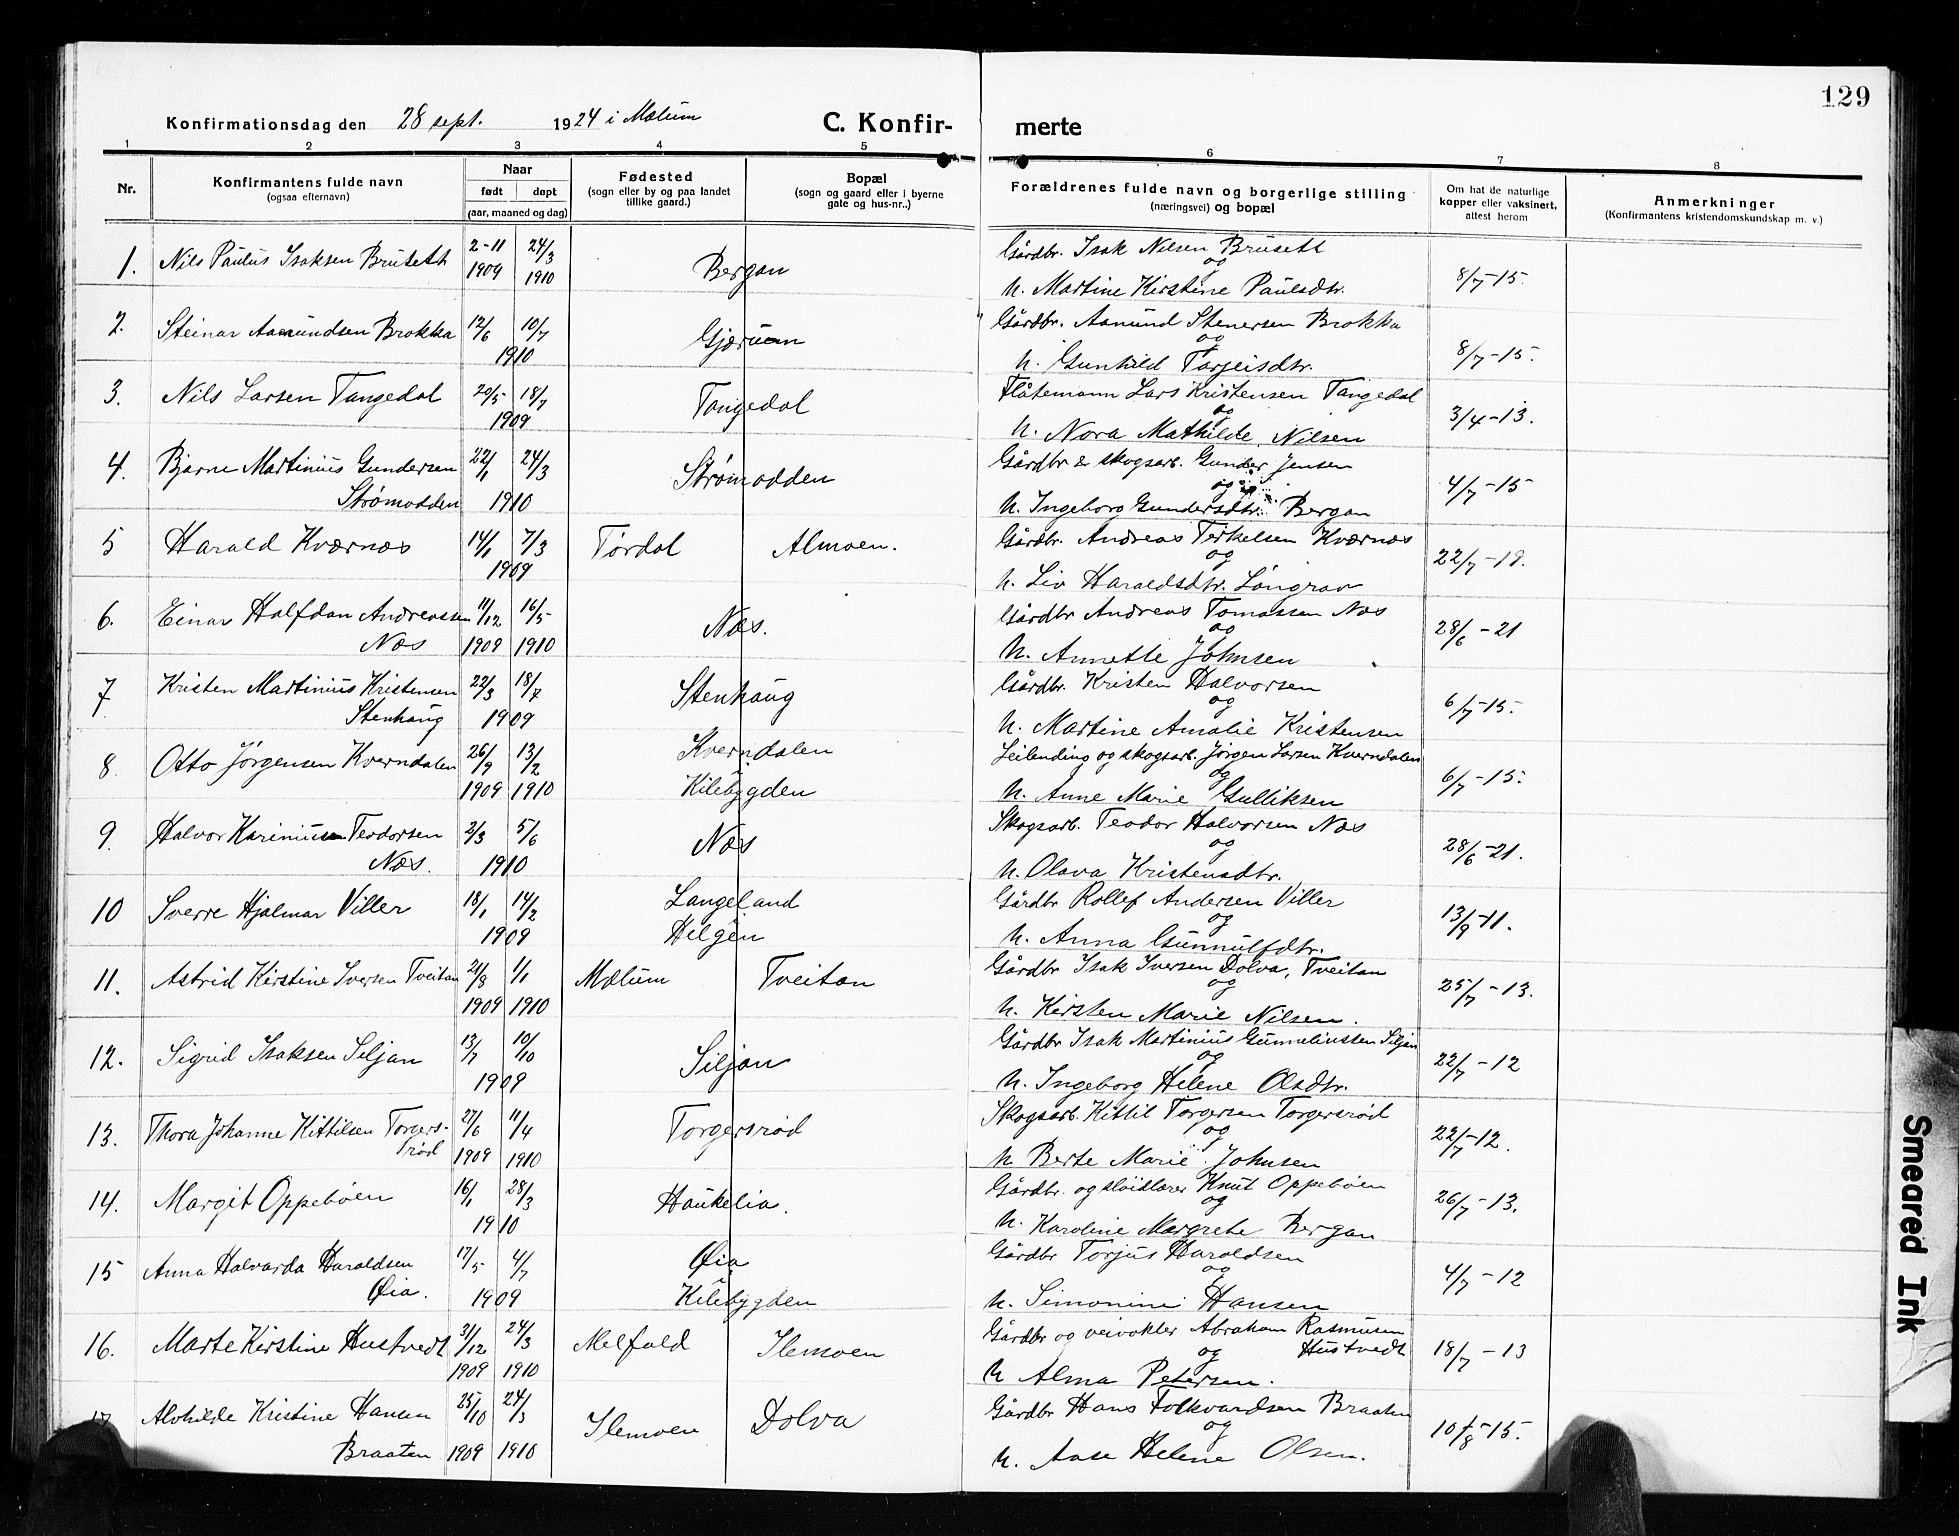 129
Konfirmationsdag den 28 sept. 1924 i Mælum C. Konfir- merte
1 2 3 4 5 6 7 8
Nr. Konfirmantens fulde navn (ogsaa efternavn) Naar født døpt (aar, maaned og dag) Fødested (sogn eller by og paa landet tillike gaard.) Bopæl (sogn og gaard eller i byerne gate og hus-nr..) Forældrenes fulde navn og borgerlige stilling (næringsvei) og bopæl Om hat de naturlige kopper eller vaksinert, attest herom Anmerkninger (Konfirmantens kristendomskundskap m. v.)
1. Nils Paulus Isaksen Brusett 2-11 1909 24/3 1910 Bergan Gårdbr. Isak Nilsen Brusett
og
h. Martine Kirstine Paulsdtr. 8/7-15.
2. Steinar Aamundsen Brokka 12/6 10/7 1910 Gjærum Gårdbr. Aamund Stenersen Brokka
og
h. Gunhild Torjeisdtr. 8/7-15.
3. Nils Larsen Tangedal 20/5 18/7 1909 Tangedal Flåtemann Lars Kristensen Tangedal
og
h. Nora Mathilde Nilsen 3/4-13.
4. Bjarne Martinius Gundersen 22/1 24/3 Strømodden Gårdbr & skogsarb. Gunder Jensen
Strømodden 1910 og
h. Ingeborg Gundersdtr. Bergan 4/7-15
5 Harald Kværnæs 14/1 7/3 1909 Tørdal Almoen. Gårdbr. Andreas Terkelsen Kværnæs
og
h. Liv Haraldsdtr. Longrav 22/7-19.
6. Einar Halfdan Andreassen 11/12 16/5 Næs. Gårdbr Andreas Tomassen Næs
Næs 1909 1910 og
h. Annette Johnsen 28/6-21
7. Kristen Martinius Kristensen 22/3 18/7 Stenhaug Gårdbr. Kristen Halvorsen
Stenhaug 1909 og
h. Martine Amalie Kristensen 6/7-15.
8. Otto Jørgensen Kverndalen 26/9 13/2 Kverndalen Leilending og skogsarb. Jørgen Larsen Kverndalen
1909 1910 Kilebygden og
h. Anne Marie Gulliksen 6/7-15.
9. Halvor Karinius Teodorsen 2/3 5/6 Næs Skogsarb. Teodor Halvorsen Næs
Næs. 1910 og
h. Olava Kristensdtr. 28/6-21.
10 Sverre Hjalmar Viller 18/1 14/2 Langeland Gårdbr Rollef Andersen Viller
1909 Helgen og
h. Anna Gunnulfdtr. 13/9-11.
11. Astrid Kirstine Iversen Tveitan 21/8 1/1 Mælum Tveitan Gårdbr Isak Iversen Dolva, Tveitan
1909 1910 og
h. Kirsten Marie Nilsen. 25/7-13.
12. Sigrid Isaksen Siljan 13/7 10/10 1909 Siljan Gårdbr Isak Martinius Gunneliussen Siljan
og
h. Ingeborg Helene Olsdtr. 22/7-12
13. Thora Johanne Kittilsen Torgers- 27/6 11/4 Torgersrød Skogsarb. Kittil Torgersen Torgersrød
rød 1909 1910 og
h Berte Marie Johnsen 22/7-12.
14. Margit Oppebøen 16/1 28/3 1910 Haukelia. Gårdbr. og sløidlærer Knut Oppebøen
og
h. Karoline Margrete Bergan 26/7-13.
15 Anna Halvarda Haraldsen 17/5 4/7 Øia Gårdbr Torjus Haraldsen
Øia. 1909 Kilebygden og
h. Simonine Hansen 4/7-12
16. Marte Kirstine Hustvedt 31/12 24/3 Melfald Ilemoen Gårdbr og veivokter Abraham Rasmusen
1909 1910 og Hustvedt
h Alma Petersen. 18/7-13
17 Alvhilde Kristine Hansen 25/10 24/3 Ilemoen Dolva Gårdbr Hans Folkvardsen Braaten
Braaten 1909 1910 og
h. Aase Helene Olsen. 10/8-15.
Smeared Ink